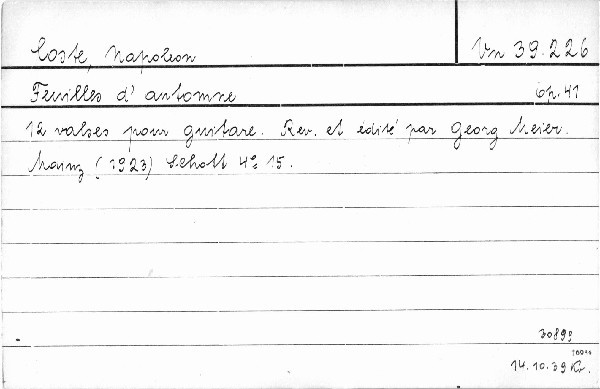 Coste, Napoleon
Vn 39.226
Feuilles d'automne op. 41
12 valses pour guitare. Rev. et édité par Georg Meier.
Mainz (1923) Schott 4° 15.
14.10.39 Kr.